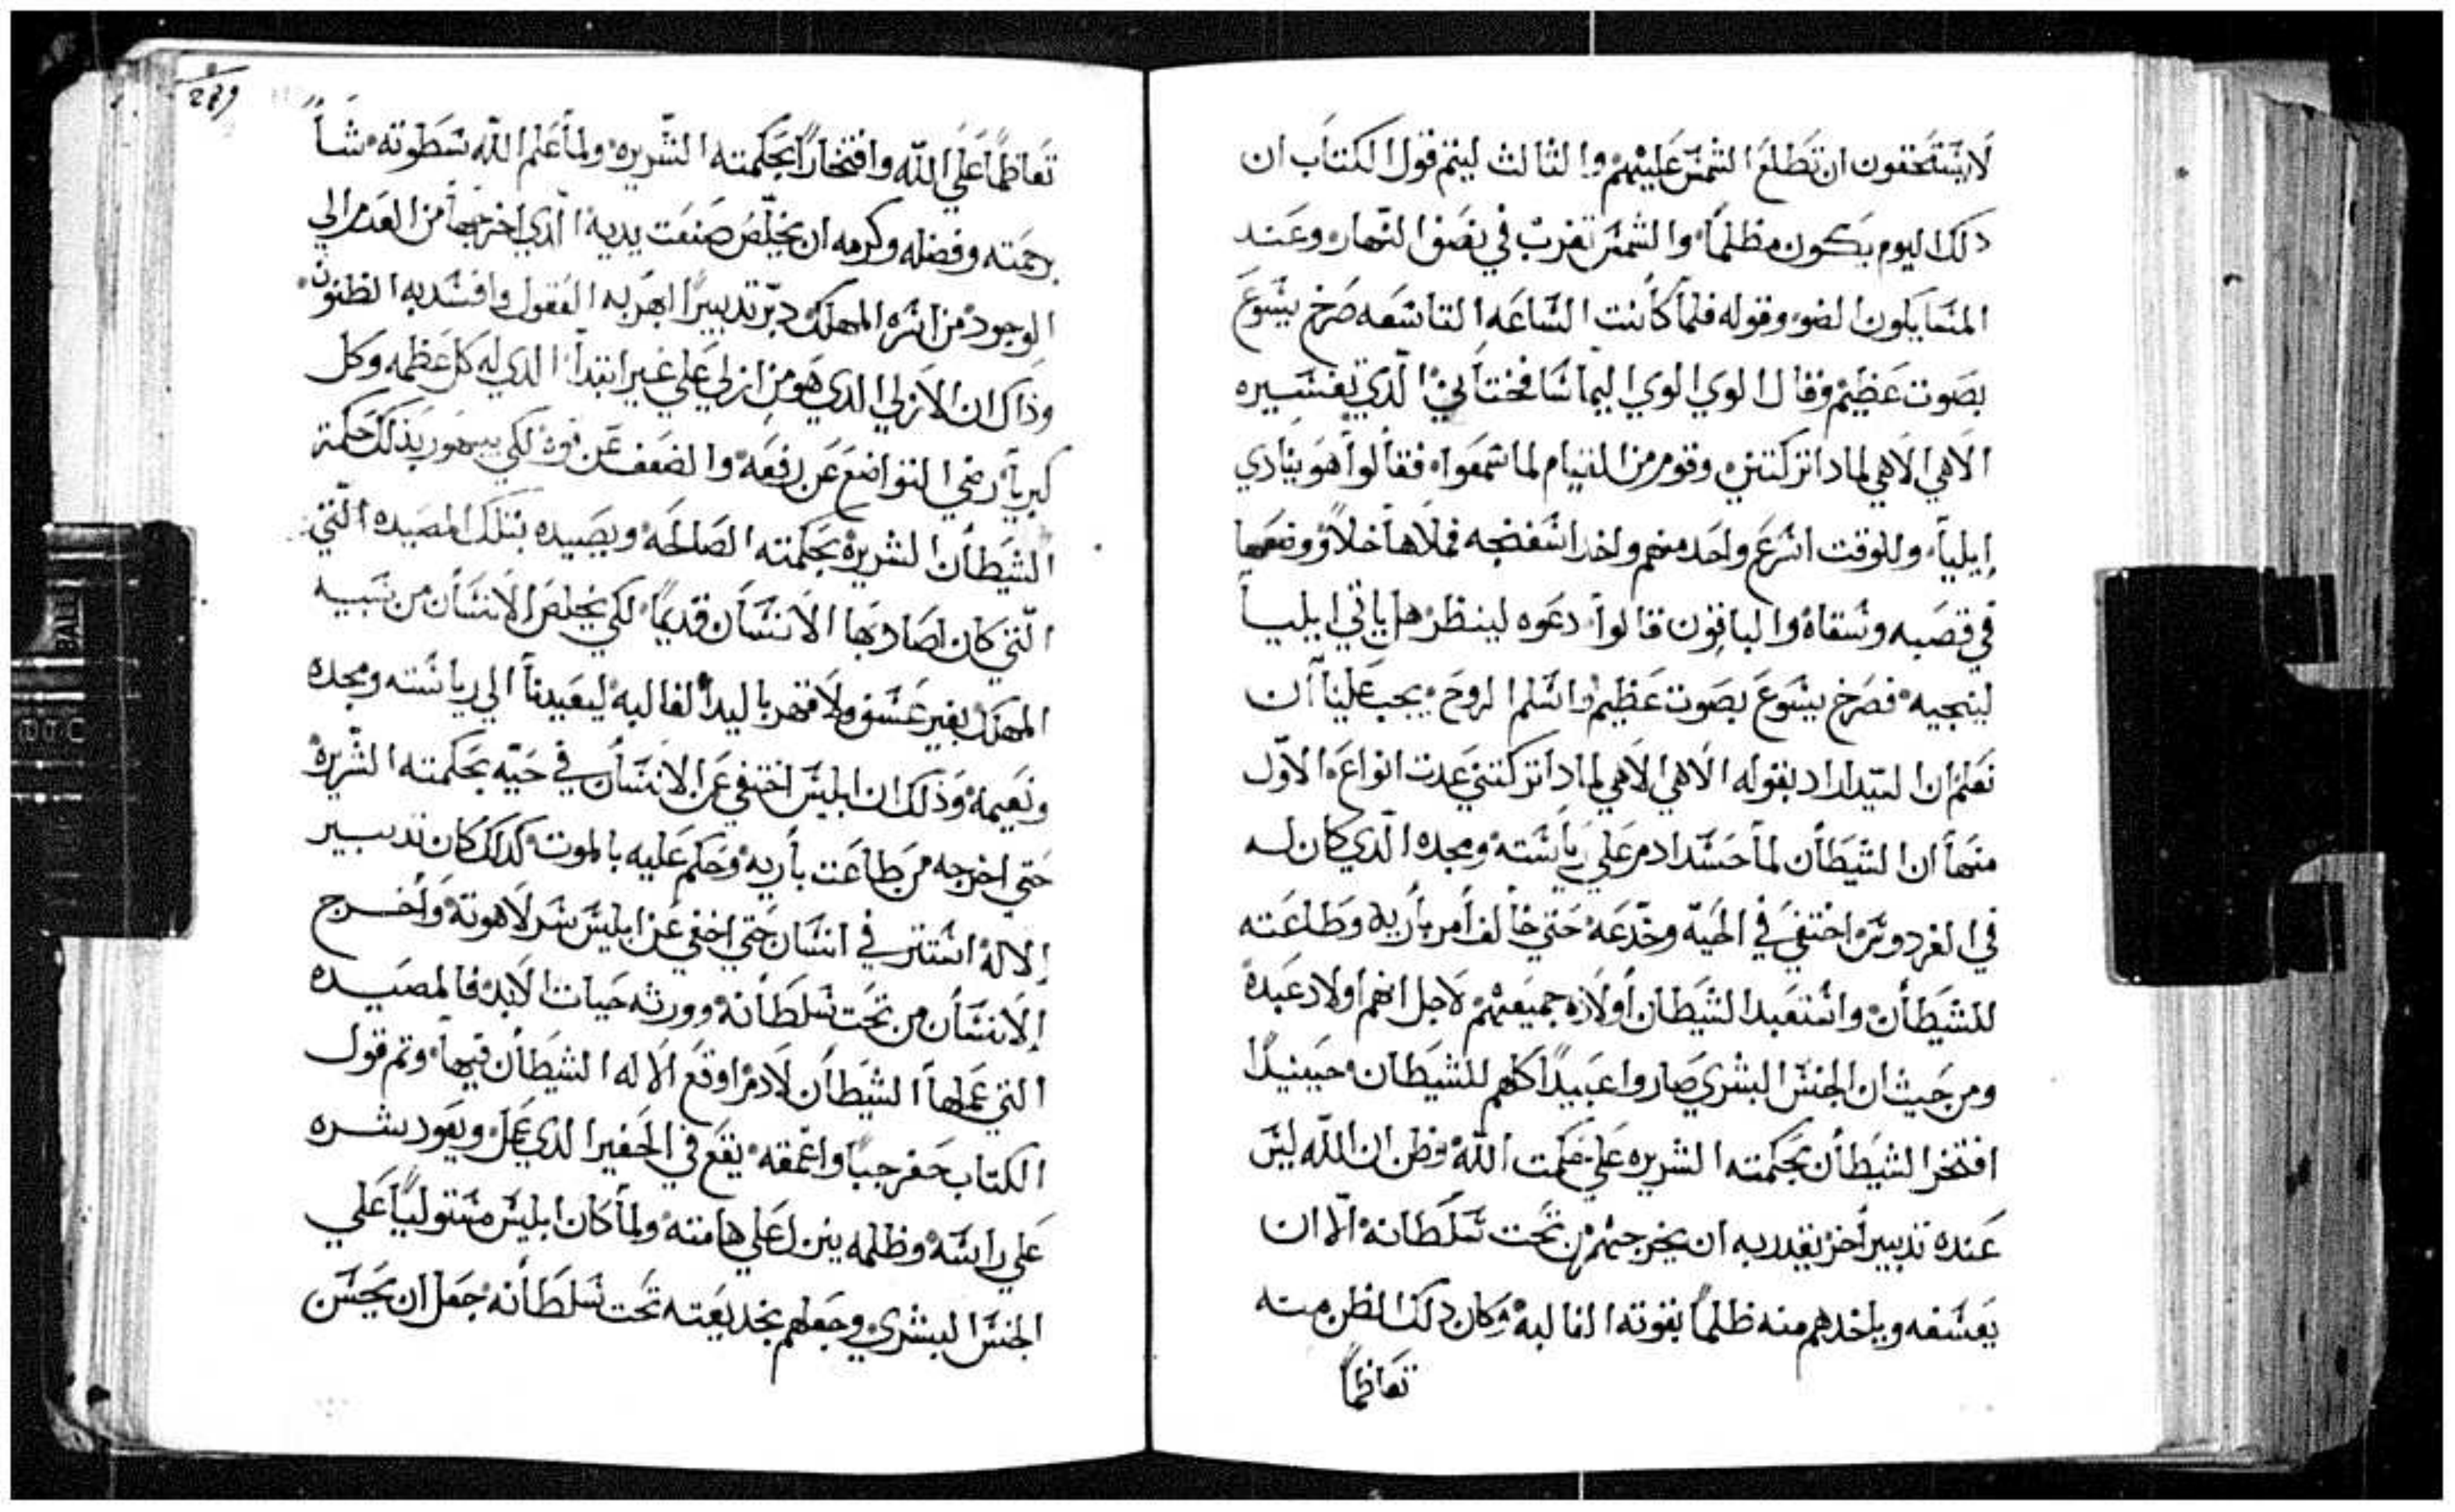 لايستحقون ان تطلع الشمس عليهم والثالث ليتم قول الكتاب ان
دلك اليوم يكون مظلماً والشمس تغرب في نصف النهار وعند
المسا يكون الضوء وقوله فلما كانت الساعه التاسعه صرخ يسوع
بصوت عظيم وقال الوي الوي اليما شافختاني الدي تفسيره
الاهي الاهي لمادا تركتني وقوم من القيام لما سمعوا فقالوا هو ينادي
إيليا وللوقت اسرع واحد منهم واخد اسفنجه فملاها خلاً ووضعها
في قصبه وسقاه والباقون قالوا دعوه لينظر هل ياتي ايليا
لينجيه فصرخ يسوع بصوت عظيم واسلم الروح يجب علينا ان
نعلم ان السيد اراد بقوله الاهي الاهي لمادا تركتني عدت انواع الاول
منها ان الشيطان لما حسد ادم علي رياسته ومجده الدي كان له
في الفردوس اختفي في الحيه وخدعه حتي خالف امر باريه وطاعته
للشيطان واستعبد الشيطان أولاده جميعهم لاجل انهم اولاد عبده
ومن حيث ان الجنس البشري صاروا عبيداً كلهم للشيطان حينيدا
افتخر الشيطان بحكمته الشريره علي حكمت الله وظن ان الله ليس
عنده تدبير أخر يقدر به ان يخرجهم من تحت سلطانه الا ان
يعسفه وياخدهم منه ظلماً بقوته الغالبه وكان دلك الظن منه
تعاظماً
279
تعاظماً علي الله وافتخاراً بحكمته الشريره ولما علم الله سطوته شا
برحمته وفضله وكرمه ان يخلص صنعت يديه الدي اخرجها من العدم الي
الوجود من اسره المهلك دبر تدبيراً ابهر به العقول وافسد به الظنون
وذاك ان الازلي الدي هو من ازلي علي غير ابتدا الدي له كل عظمه وكل
كبريا رضي التواضع عن رفعه والضعف عن قوه لكي بذلك حكمة
الشيطان الشريره بحكمته الصالحه ويصيده بتلك المصيده التي
التي كان اصاد بها الانسان قديماً لكي يخلص الانسان من سبيه
المهلك بغير عسف ولا قهر باليد الغالبه ليعيدنا الي رياسته ومجده
ونعيمه وذلك ان ابليس اختفي عن الانسان في حيه بحكمته الشريره
حتي اخرجه من طاعت باريه وحكم عليه بالموت كدلك كان تدبير
الاله استتر في انسان حتي اخفي عن ابليس سر لاهوته وأخرج
الانسان من تحت سلطانه وورثه حيات الابد فالمصيده
التي عملها الشيطان لادم اوقع الاله الشيطان فيها وتم قول
الكتاب حفر جباً واعمقه يقع في الحفير الدي عمل ويعود شره
علي راسه وظلمه ينزل علي هامته ولما كان ابليس مستولياً علي
الجنس البشري وجعلهم بخديعته تحت سلطانه جعل ان يحسن